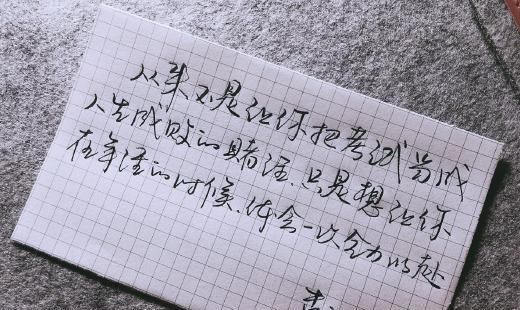 从来不是让你把考试当成
人生成败的赌注,只是想让你
在年轻的时候,体会一次全力以赴